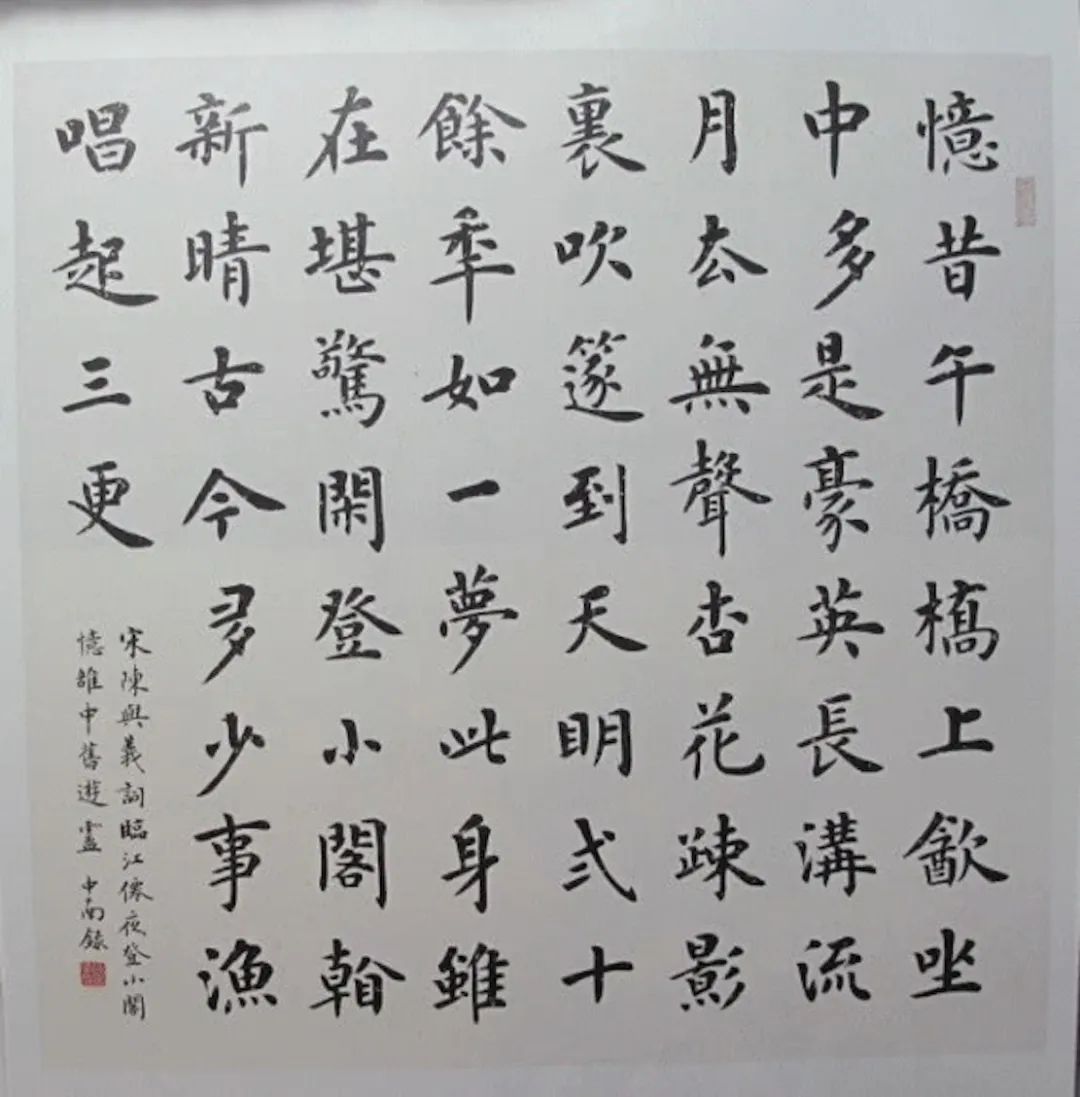 憶昔午橋橋上歠坐
中多是豪英長溝流
月厺無聲杏花疎影
裏吹篴到天明弍十
餘秊如一夢此身雖
在堪驚閑登小閣翰
新晴古今多少事漁
唱起三更
宋陳與義詞臨江僊夜登小閣
憶雒中舊遊 中南錄